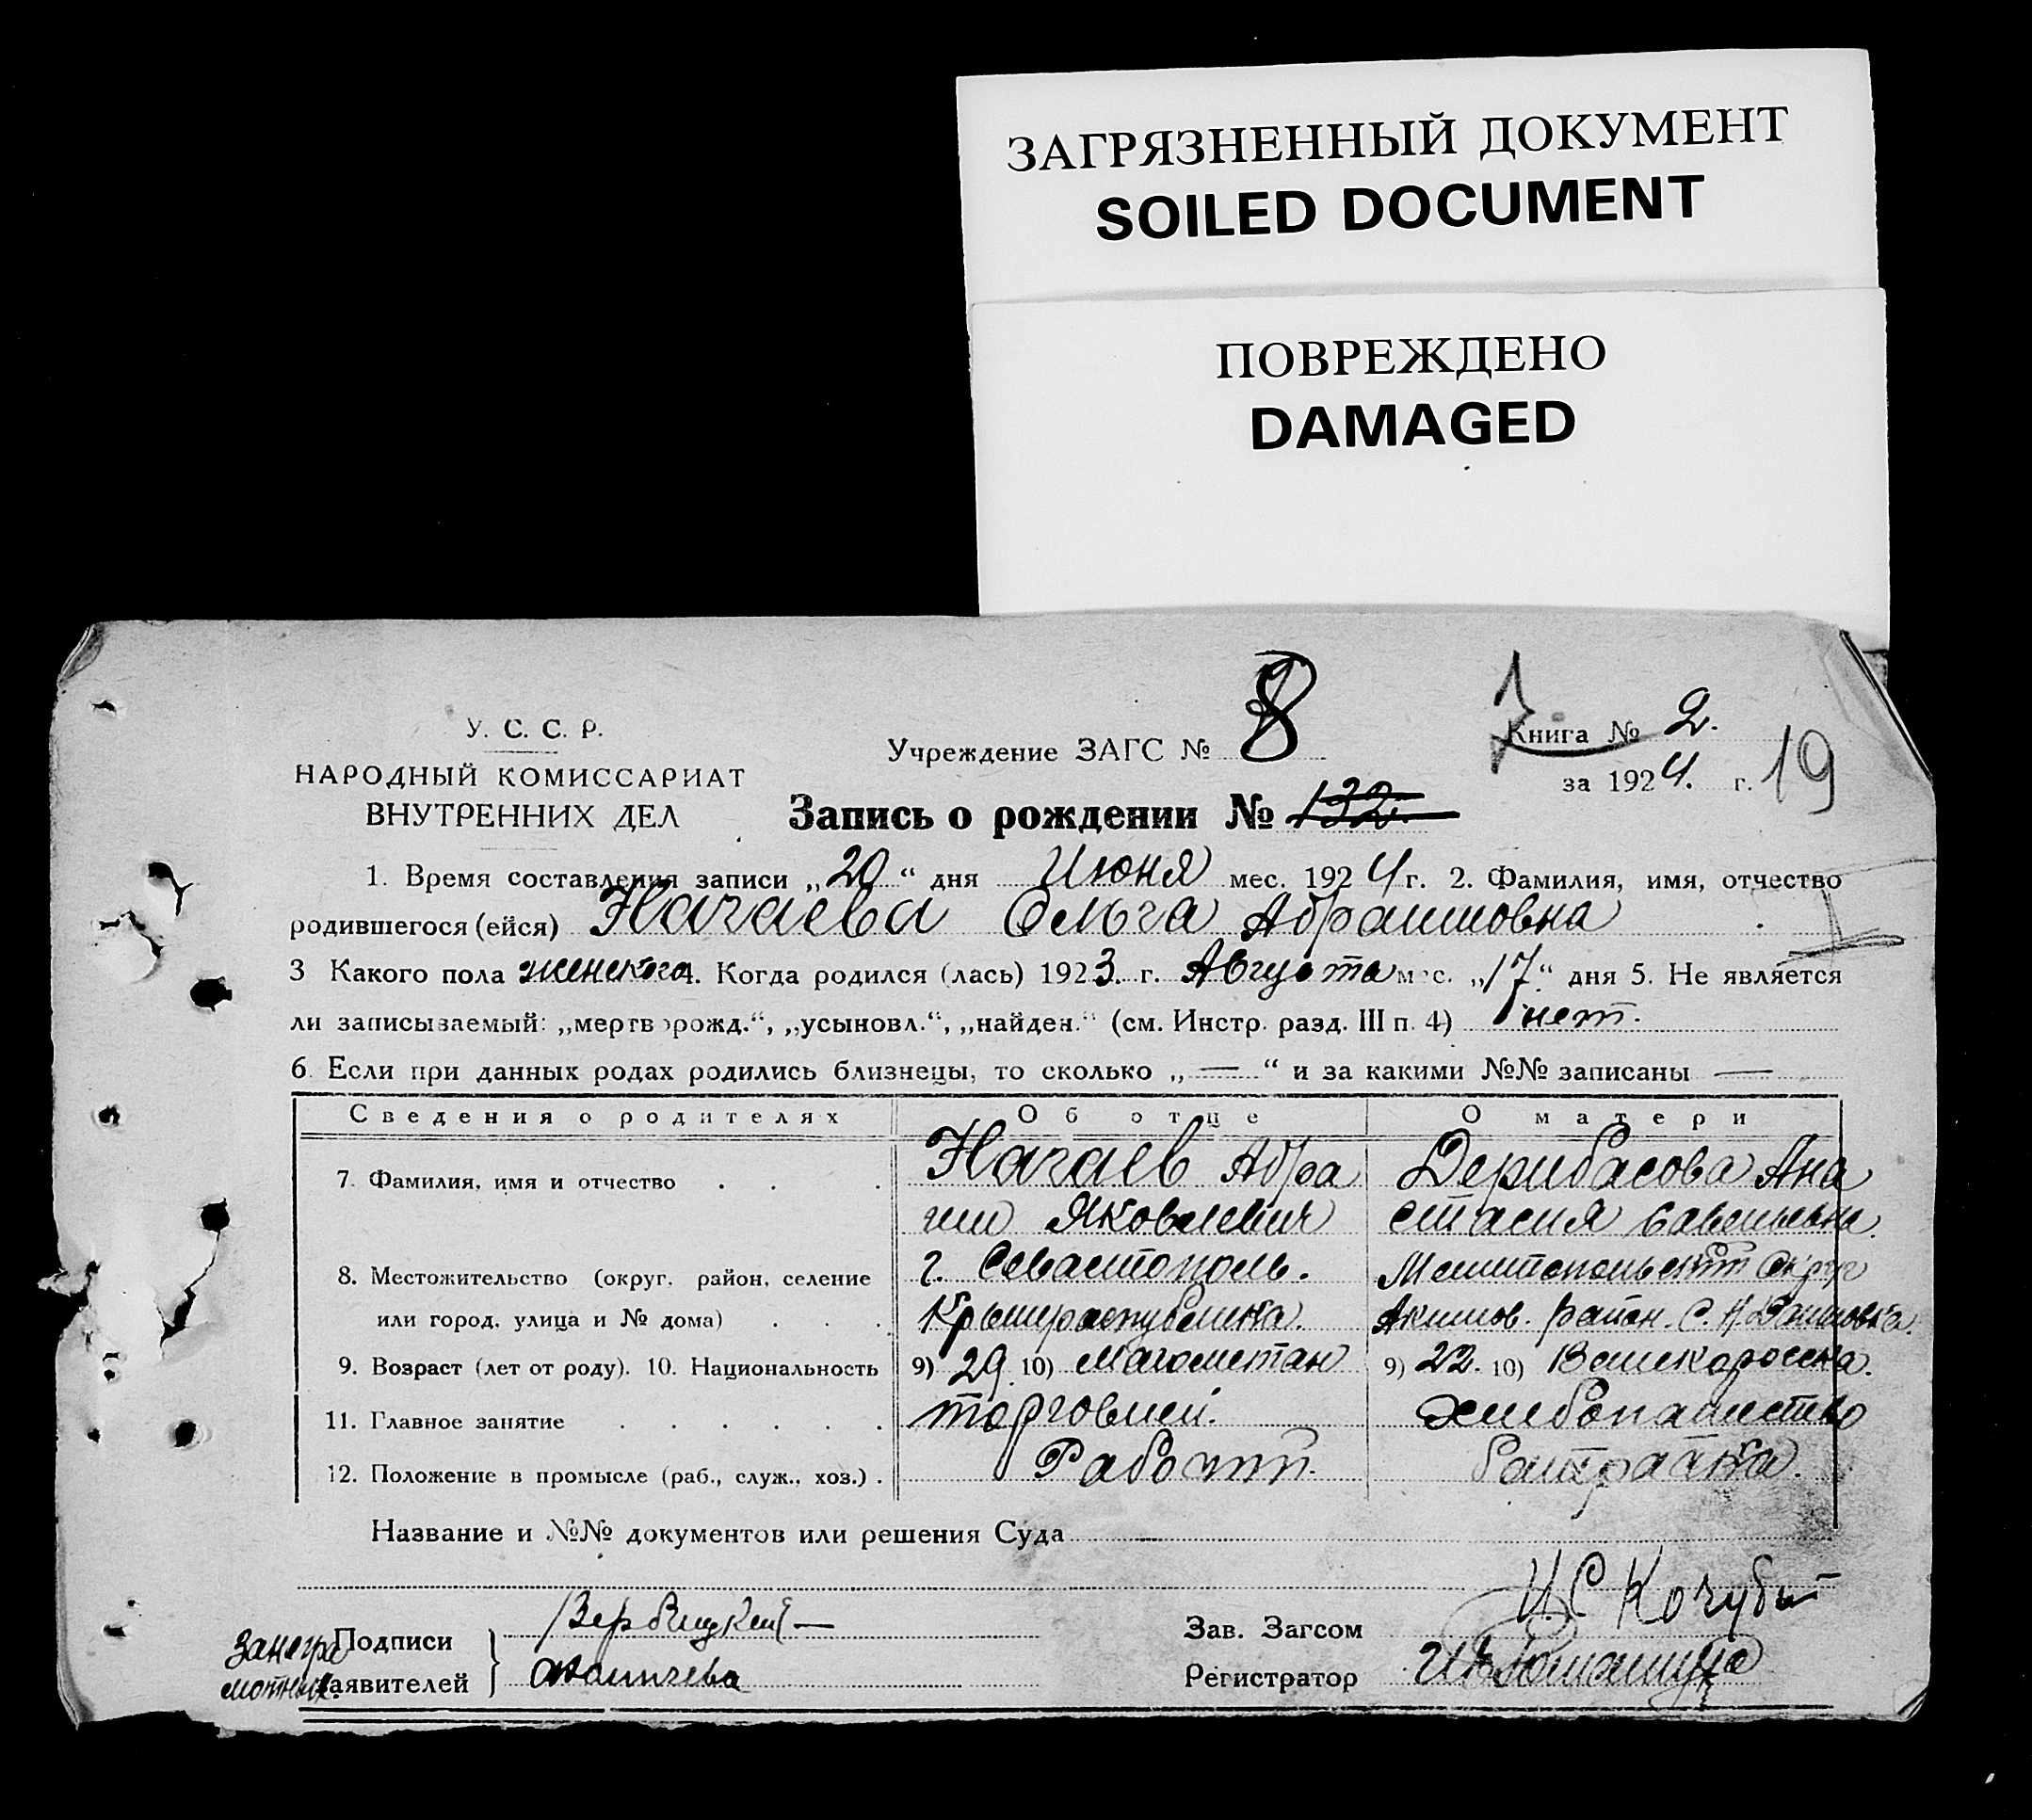 ЗАГРЯЗНЕННЫЙ ДОКУМЕНТ
SOILED DOCUMENT
ПОВРЕЖДЕНО
DAMAGED
У. С. С. Р.
НАРОДНЫЙ КОМИССАРИАТ
ВНУТРЕННИХ ДЕЛ
Учреждение ЗАГС № 8
Книга № 2.
за 1924. г. 19
Запись о рождении № 132.
1. Время составления записи „20“ дня Июня мес. 1924 г. 2. Фамилия, имя, отчество
родившегося (ейся) Нагаева Ольга Абрашмовна
3 Какого пола женского 4. Когда родился (лась) 1923. г. Августа мес. „17.“ дня 5. Не является
ли записываемый: „мертворожд.“, „усыновл.“, „найден.“ (см. Инстр. разд. III п. 4) нет.
6. Если при данных родах родились близнецы, то сколько „—“ и за какими №№ записаны —
Сведения о родителях Об отце О матери
7. Фамилия, имя и отчество . . . Нагаев Абра Дерибасова Ана
Яковлевич стасия Савельевна.
8. Местожительство (округ. район, селение г. Севастополь. Мелитопольский Округ
или город, улица и № дома) . . . Крымреспублика. Акимов. район. С.
9. Возраст (лет от роду). 10. Национальность 9) 29. 10) Магометан 9) 22. 10) Великоросска.
11. Главное занятие . . . . . . торговлей. хлебопашество
12. Положение в промысле (раб., служ., хоз.) . Рабочий. батрачка.
Название и №№ документов или решения Суда —
И. С Кочубей
Подписи Вербицкий — Зав. Загсом
Занегра
мотных. Заявителей Регистратор